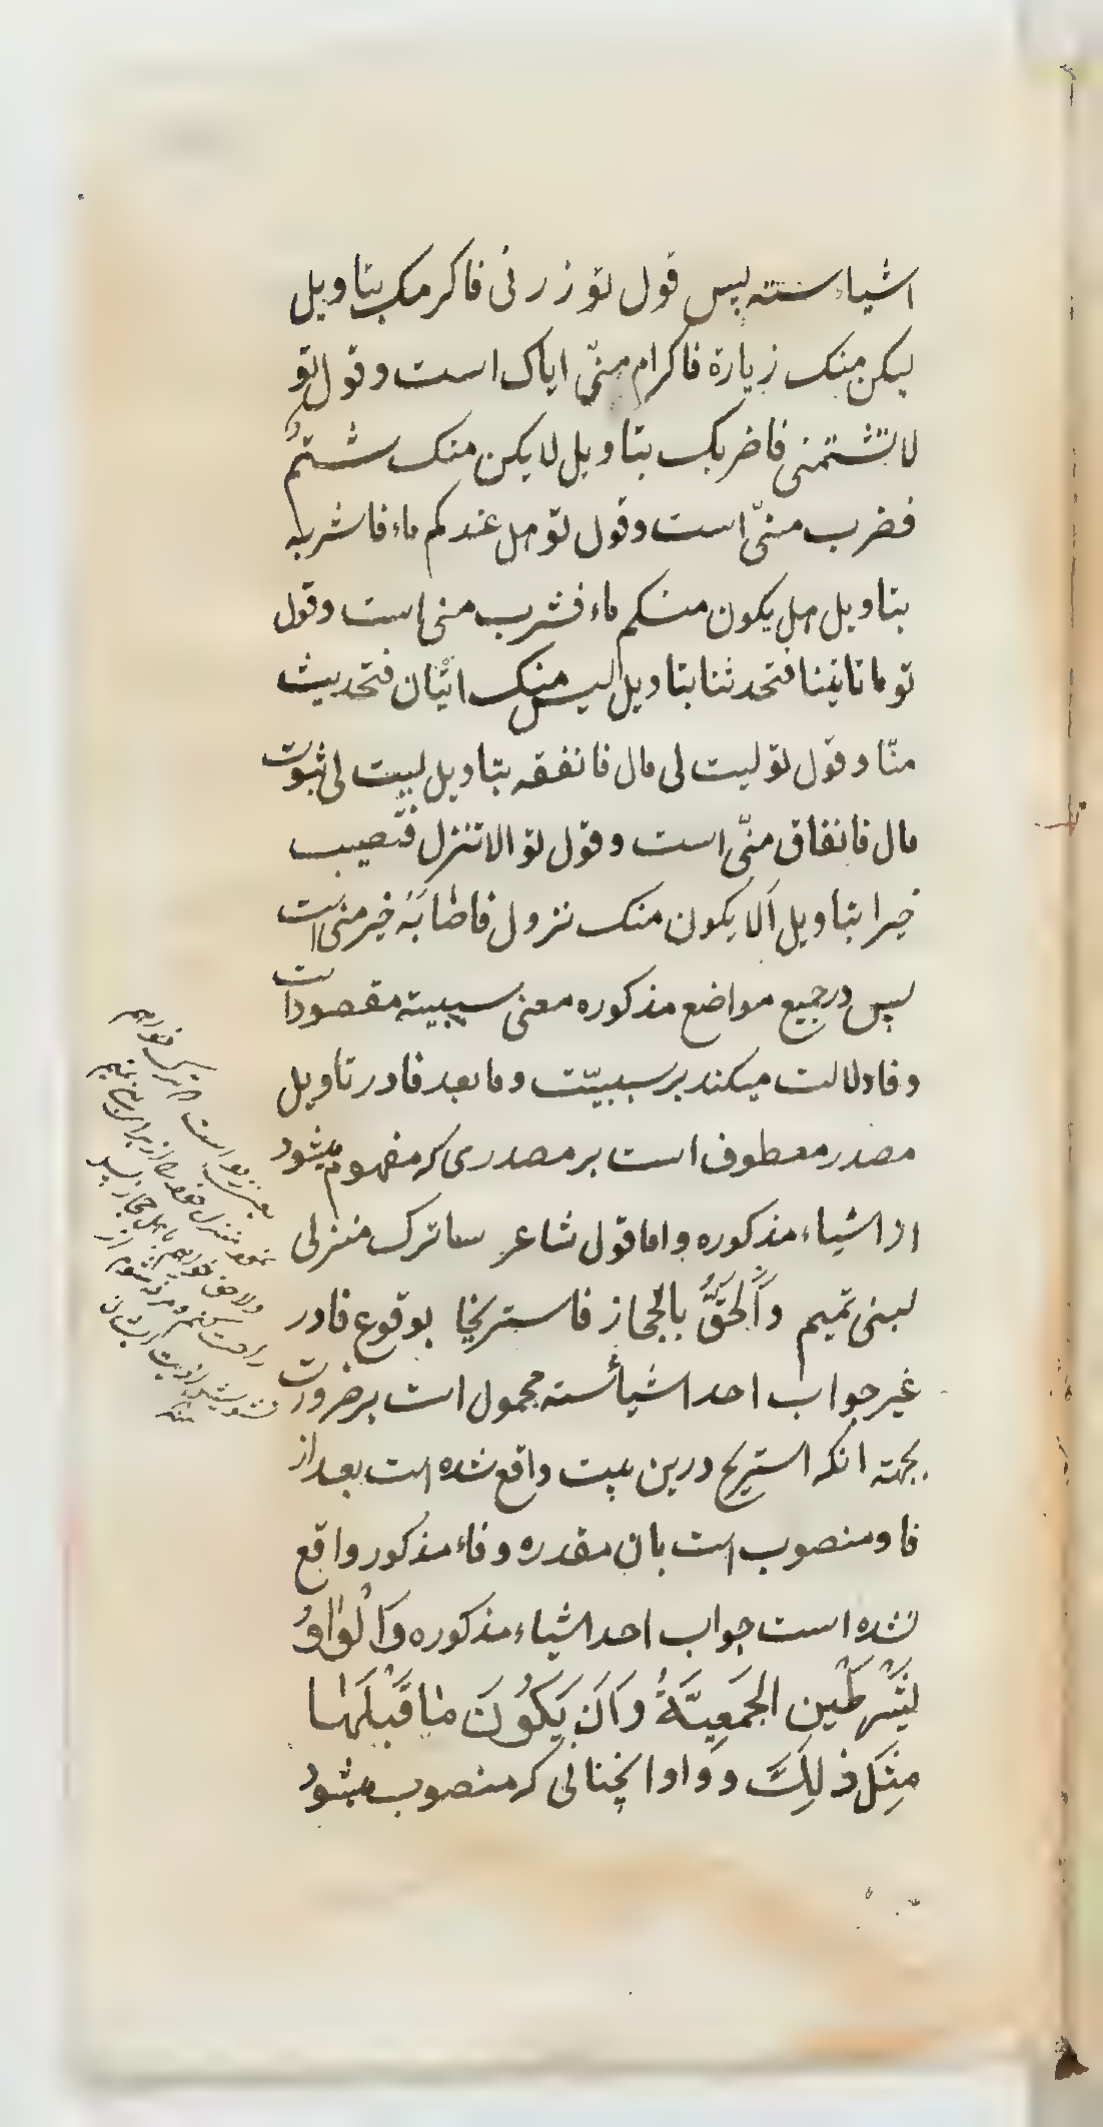 اشیاء سته پس قول تو زرنی فاکرمک بتاویل
لیکن منک زیارة فاکرام منّی ایاک است و قول تو
لا تشتمنی فاضربک بتاویل لا یکن منک شتمٌ
فضرب منّی است و قول تو هل عندکم ماء فاشربه
بتاویل هل یکون منکم ماء فشرب منی است و قول
تو ما تاتینا فتحدثنا بتاویل لیس منک اتیان فتحدیث
منّا و قول تو لیت لی مال فانفقه بتاویل لیت لی ثبوت
مال فانفاق منّی است و قول تو الا تنزل فتصیب
خیرا بتاویل اَلا یکون منک نزول فاصابَة خیر منی است
پس در جمیع مواضع مذکوره معنی سببیته مقصود است
و فا دلالت میکند بر سببیّت و ما بعد فا در تاویل
مصدر معطوف است بر مصدری که مفهوم میشود
از اشیاء مذکوره و اما قول شاعر ساترک منزلی
لبنی تمیم وَاَلحَقُّ بالحجاز فاستریحا بوقوع فا در
غیر جواب احد اشیأ سته محمول است بر ضرورت
بجهته انکه استریح درین بیت واقع شده است بعد از
فا و منصوب است بان مقدره و فاء مذکور واقع
نشده است جواب احد اشیاء مذکوره وَالْوٰاوُ
بِشَرْطَیْنِ الجَمْعِیَّةُ وَاَنْ یَکُوْنَ مٰا قَبْلَهٰا
مِثْلَ ذٰلِکَ و واو انچنانی که منصوب میشود